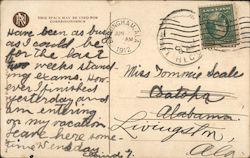 THIS SPACE MAY BE USED FOR
CORRESPONDENCE
Have been as busy
as I could be
for the last
two weeks stand
ing exams. How-
ever I finished
yesterday and
am entering
on my vacation
Leave here some
time Wednesday
JUN
AM
1912
REC'D
Miss Tommie Scales
Alabama
Livingston,
Ala